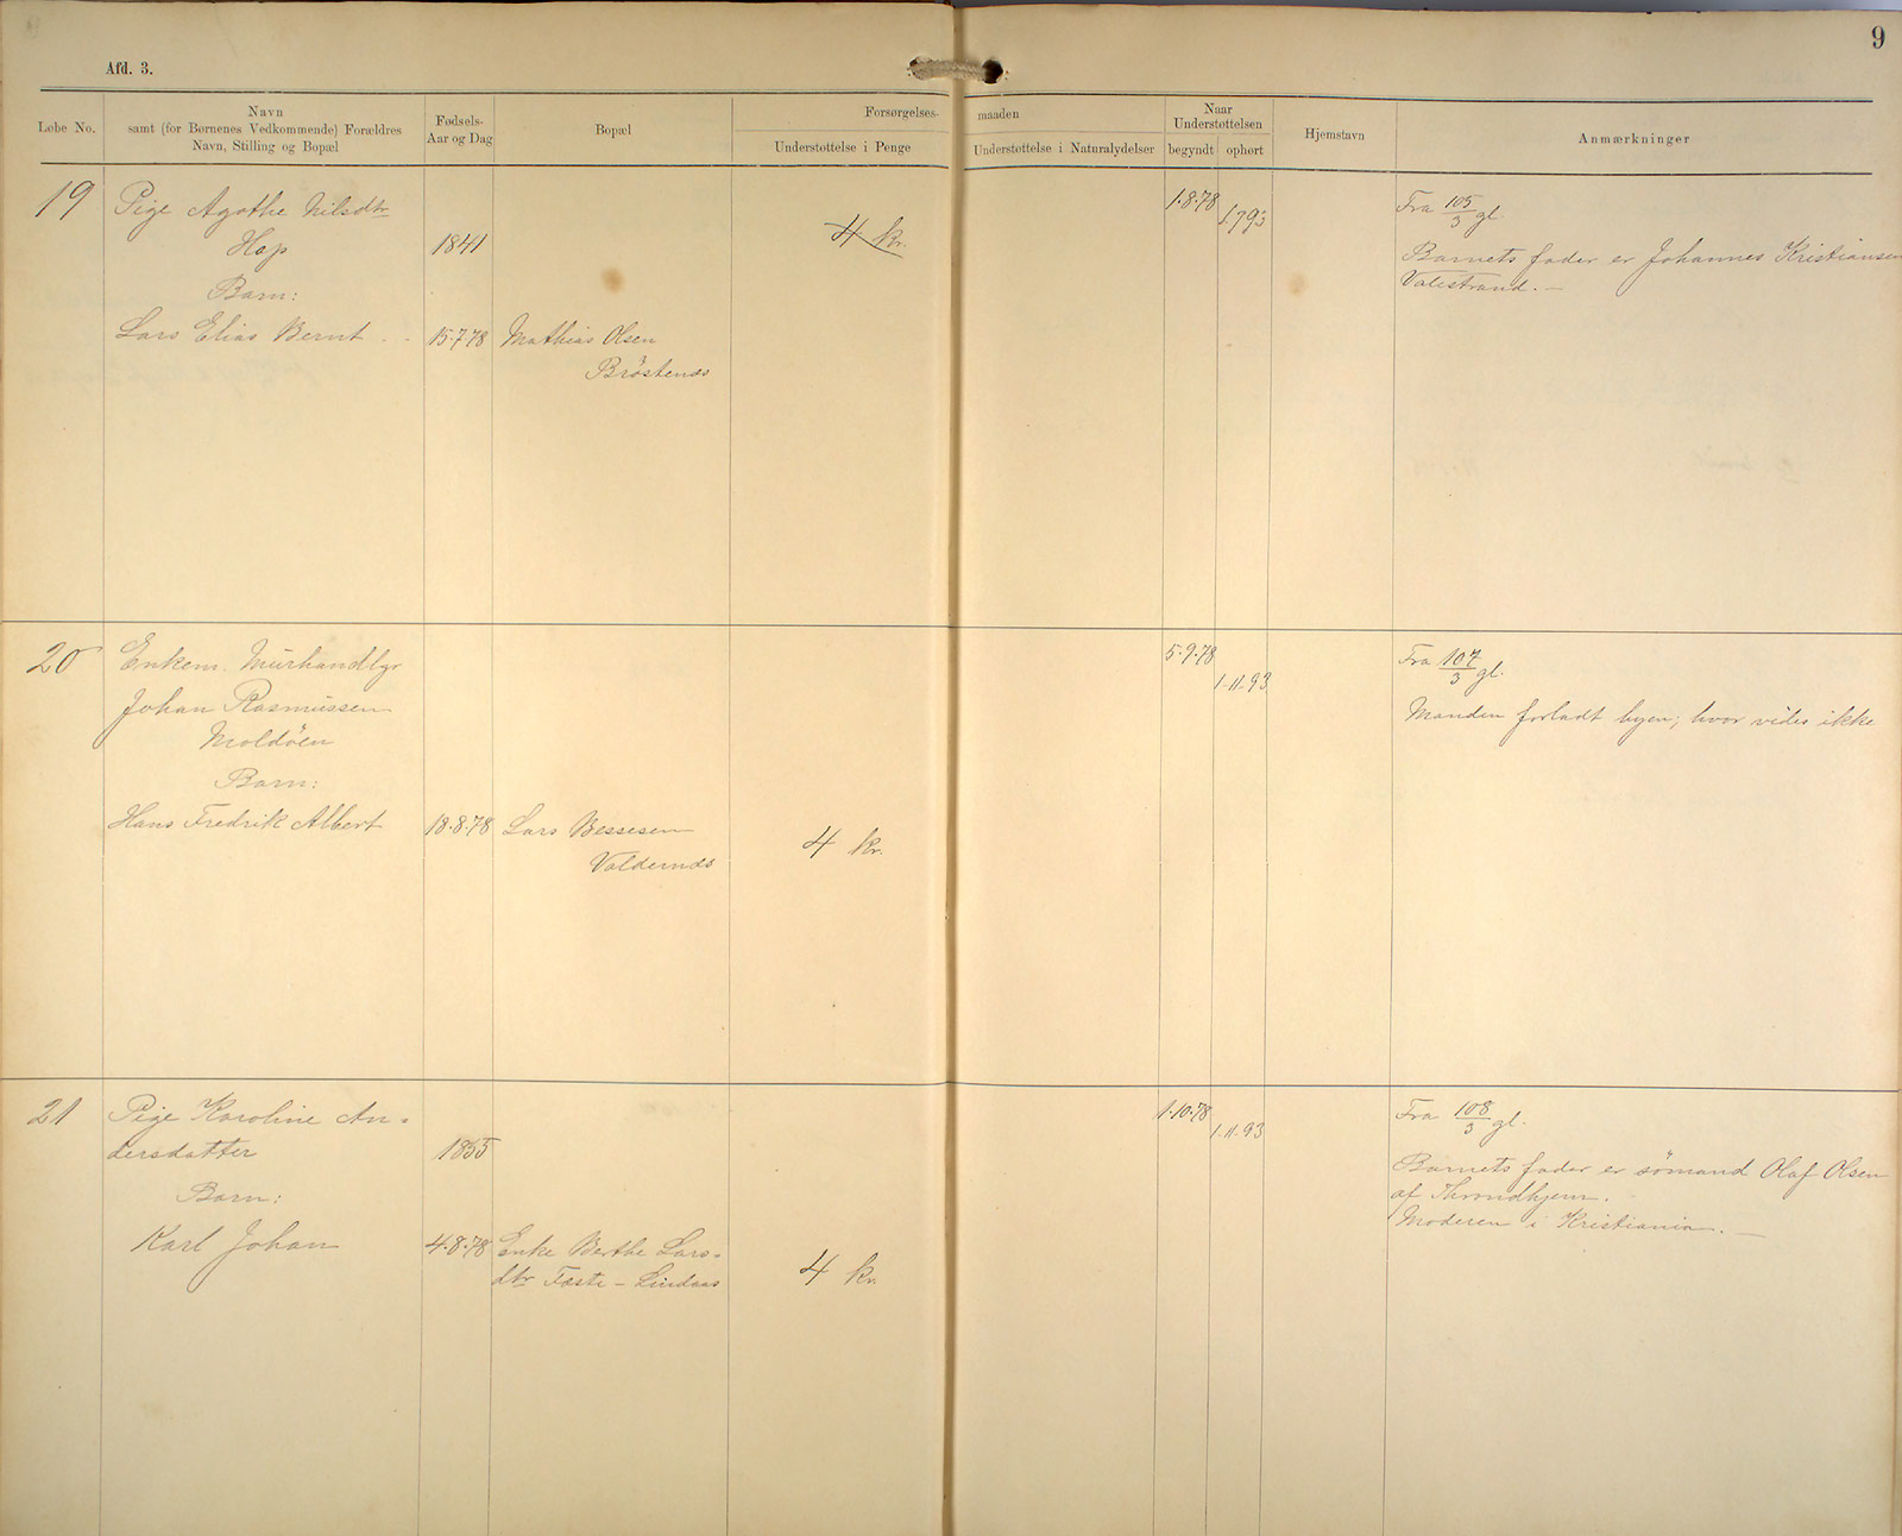 9
Afd. 3.
Løbe No.
Navn
samt (for Børnenes Vedkommende) Forældres
Navn, Stilling og Bopæl
Fødsels-
Aar og Dag
Bopæl
Forsørgelses-
maaden
Understøttelse i Penge
Understøttelse i Naturalydelser
Naar
Understøttelsen
begyndt
ophørt
Hjemstavn
Anmærkninger
19
Pige Agathe Nilsdtr
Hop
1841
Barn:
Lars Elias Bernt
15.7.78
Mathias Olsen
4 kr.
1.8.78
Fra 105/3 gl.
Barnets fader er Johannes Kristiansen
Valestrand. —
20
Enkem. Murhandlgr
Johan Rasmussen
Moldöen
Barn:
Hans Fredrik Albert
18.8.78
Lars Bessesen
Valdernæs
4 kr.
5.9.78
1.11.93
Fra 107/3 gl.
Manden forladt byen; hvor vides ikke
21
Pige Karoline An-
dersdatter
1855
Barn:
Karl Johan
4.8.78
Enke Berthe Lars-
dtr Feste - Lindaas
4 kr.
1.10.78
1.11.93
Fra 108/3 gl.
Barnets fader er sömand Olaf Olsen
af Throndhjem.
Moderen i Kristiania. —